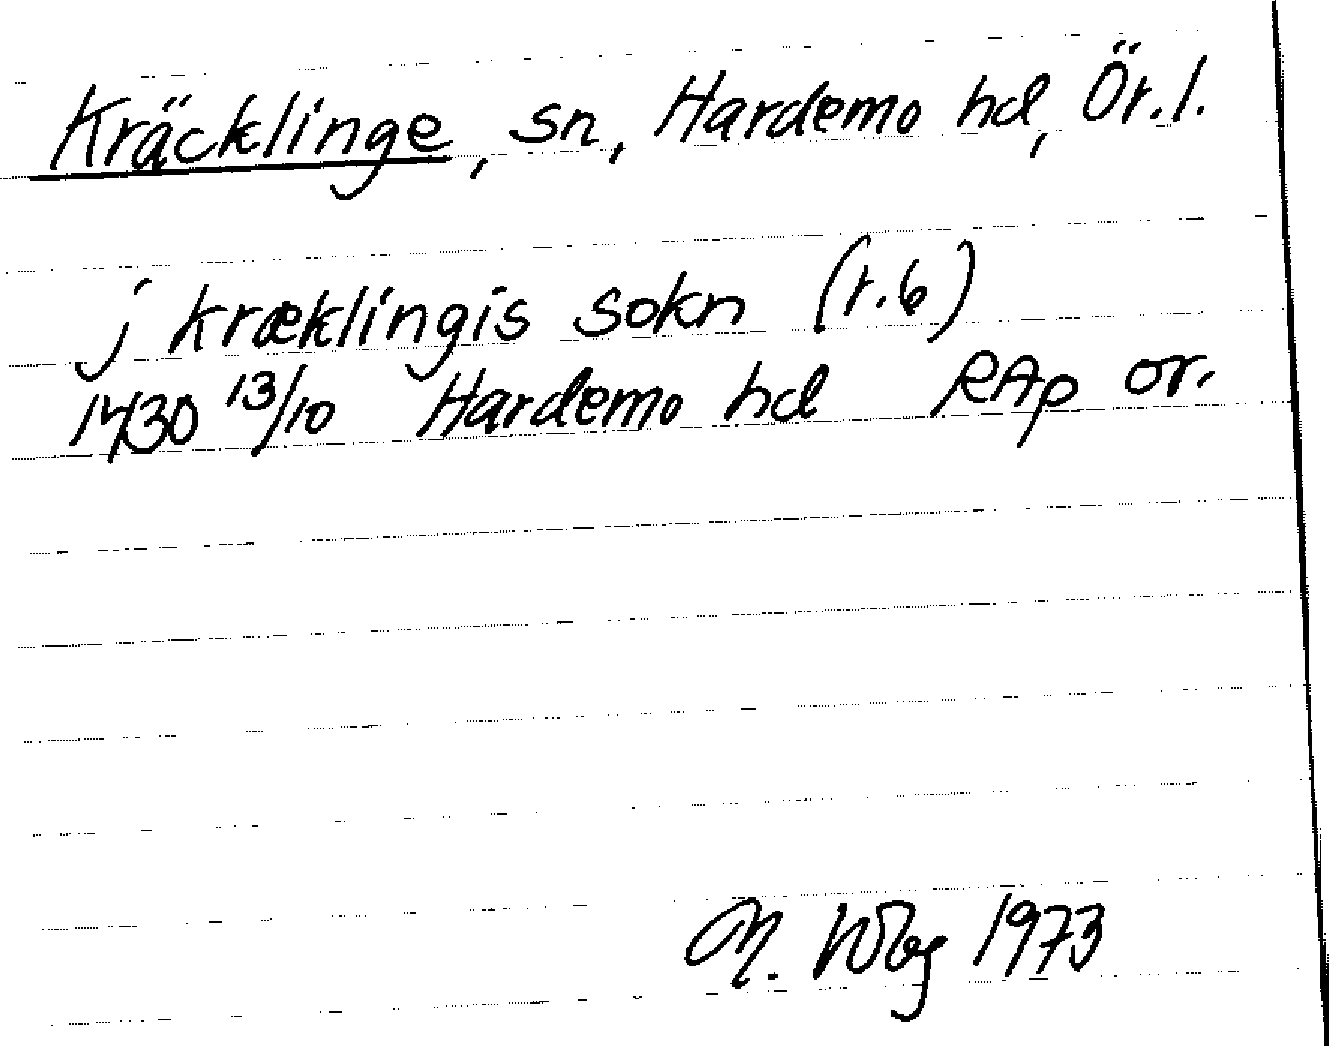 Kräcklinge, sn, Hardemo hd, Ör.l.
j kræklingis sokn (r.6)
1430 13/10 Hardemo hd RAp or.
1973